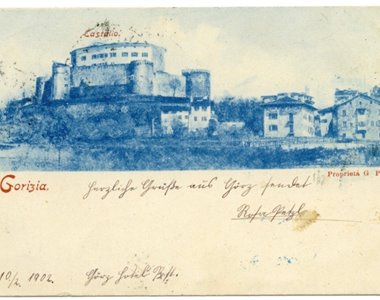 Castello.
Gorizia.
Proprietà G. P
Herzliche Grüße aus Görz sendet
Rosa
10/2. 1902. Görz Hotel Post.